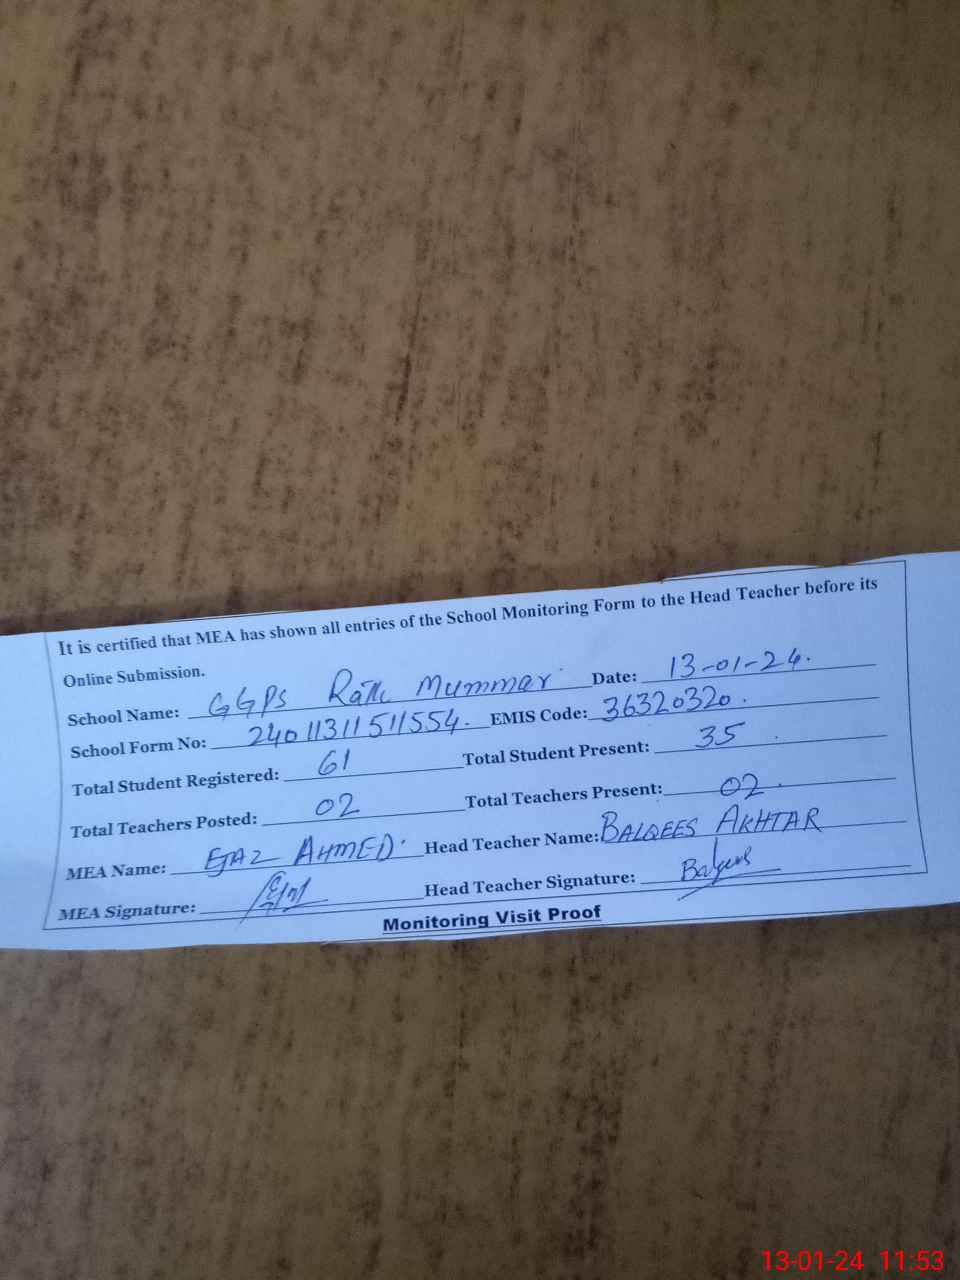 It is certified that MEA has shown all entries of the School Monitoring Form to the Head Teacher before its
Online Submission.
School Name: GGPS Mummar Date: 13-01-24.
School Form No: 24011311511554. EMIS Code: 36320320.
Total Student Registered: 61 Total Student Present: 35
Total Teachers Posted: 02 Total Teachers Present: 02.
MEA Name: EJAZ AHMED. Head Teacher Name: BALQEES AKHTAR
MEA Signature: Head Teacher Signature: Balqees
Monitoring Visit Proof
13-01-24 11:53